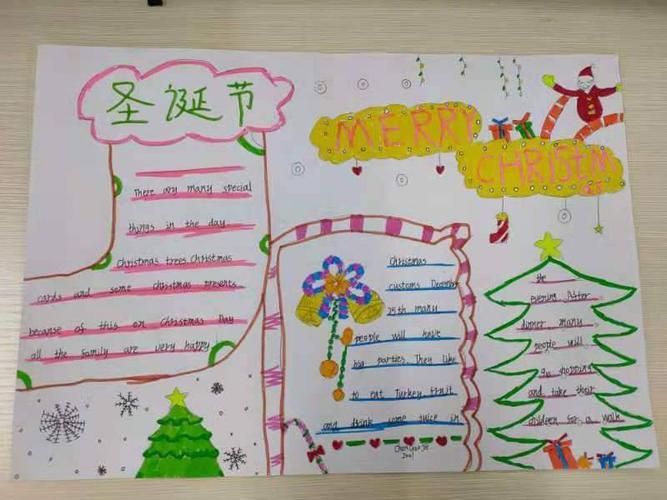 圣诞节
There are many special
things in the day
Christmas trees. Christmas
cards and some christmas presents
because of this on Christmas Day
all the family are very happy
MERRY
CHRISTMAS
Christmas
customs December
25th many
people will have
big parties. They like
to eat Turkey, fruit
and drink some twice in
the
evening After
dinner many
people will
go shopping
and take their
children for a walk